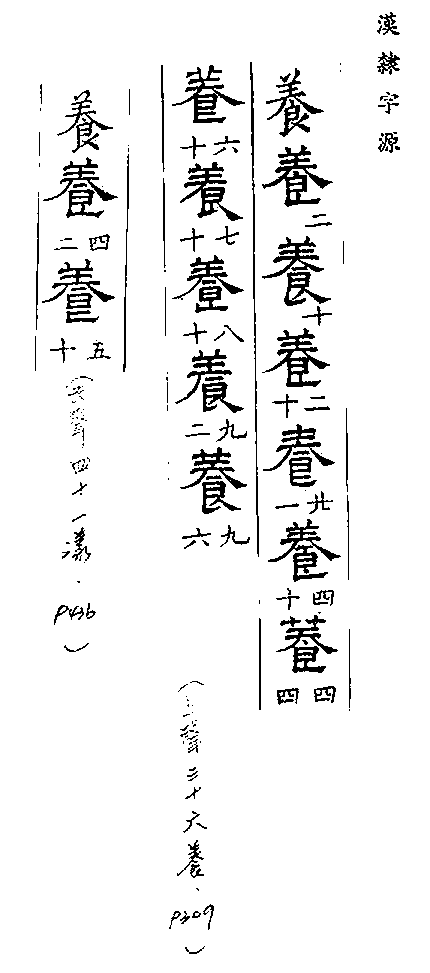 漢隸字源
養養二養十養二十養廿一養四十養四四
養六十養七十養八十養九二養九六
(上聲三十六養、P309)
養養四二養五十(去聲四十一漾、P436)